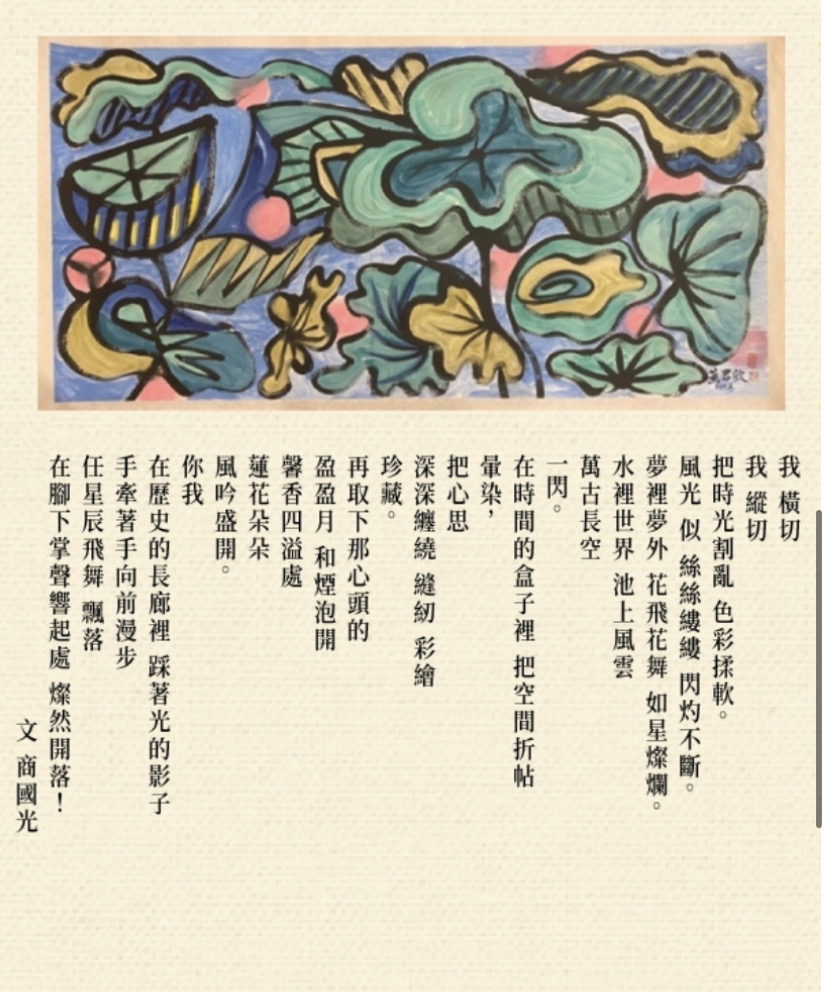 我 橫切
我 縱切
把時光割亂 色彩揉軟。
風光 似 絲絲縷縷 閃灼不斷。
夢裡夢外 花飛花舞 如星燦爛。
水裡世界 池上風雲
萬古長空
一閃。
在時間的盒子裡 把空間折帖
暈染，
把心思
深深纏繞 縫紉 彩繪
珍藏。
再取下那心頭的
盈盈月 和煙泡開
馨香四溢處
蓮花朵朵
風吟盛開。
你我
在歷史的長廊裡 踩著光的影子
手牽著手向前漫步
任星辰飛舞 飄落
在腳下掌聲響起處 燦然開落！
文 商國光